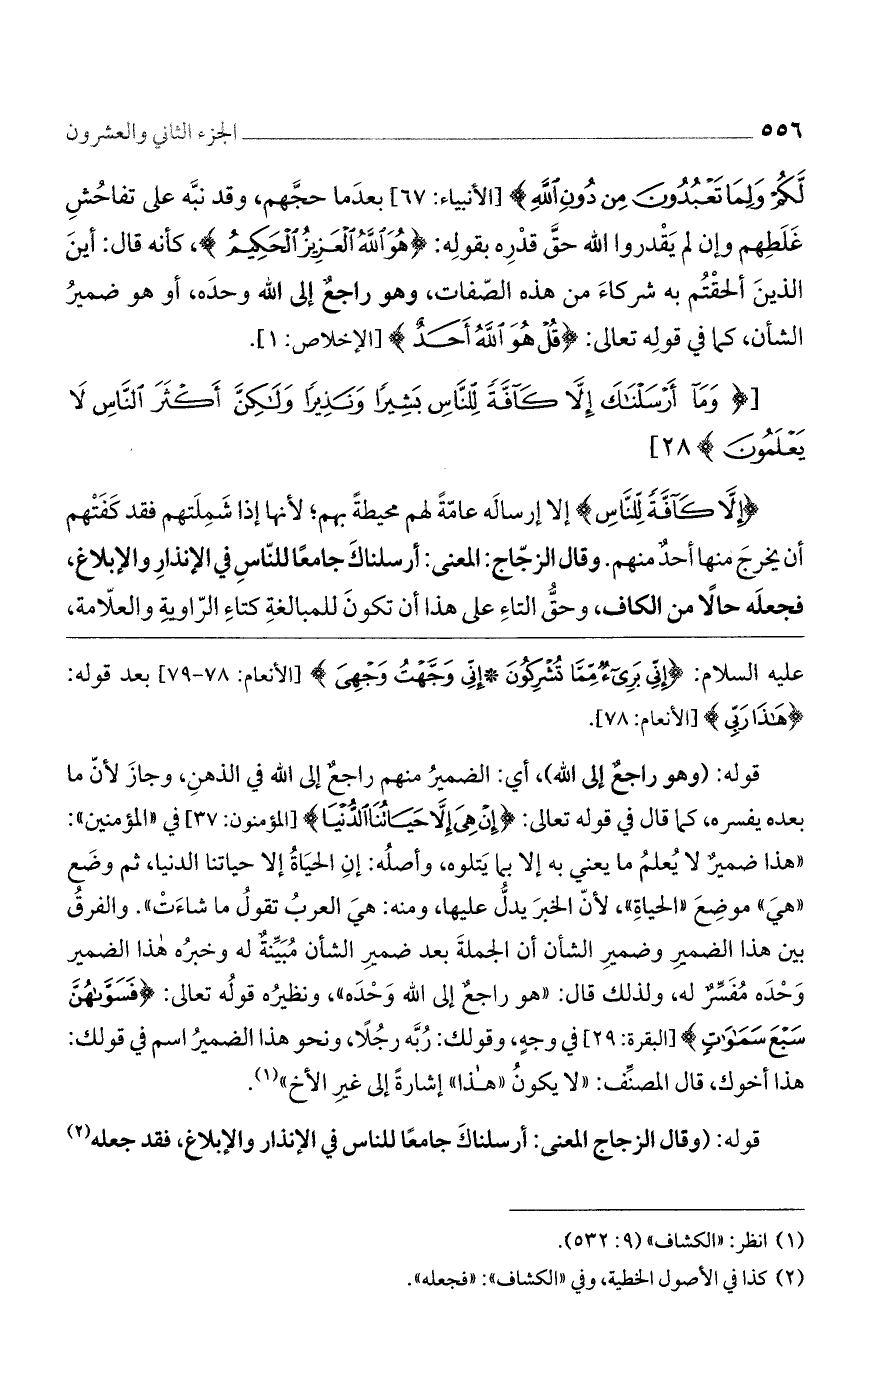 ٥٥٦ ــــــــــــــــــــ الجزء الثاني والعشرون
لَّكُمْ وَلِمَا تَعْبُدُونَ مِن دُونِ ٱللَّهِ﴾ [الأنبياء: ٦٧] بعدَما حجَّهم، وقد نبَّه على تفاحُشِ
غَلَطِهم وإن لم يَقْدروا الله حقَّ قدْرِه بقولِه: ﴿هُوَ ٱللَّهُ ٱلْعَزِيزُ ٱلْحَكِيمُ﴾، كأنه قال: أينَ
الذينَ ألحقْتُم به شركاءَ من هذه الصّفات، وهو راجعٌ إلى الله وحدَه، أو هو ضميرُ
الشأن، كما في قولِه تعالى: ﴿قُلْ هُوَ ٱللَّهُ أَحَدٌ﴾ [الإخلاص: ١].
[﴿ وَمَآ أَرْسَلْنَٰكَ إِلَّا كَآفَّةً لِّلنَّاسِ بَشِيرًا وَنَذِيرًا وَلَٰكِنَّ أَكْثَرَ ٱلنَّاسِ لَا
يَعْلَمُونَ ﴾ ٢٨]
﴿إِلَّا كَآفَّةً لِّلنَّاسِ﴾ إلا إرسالَه عامّةً لهم محيطةً بهم؛ لأنها إذا شَمِلَتهم فقد كَفَتْهم
أن يخرجَ منها أحدٌ منهم. وقال الزجّاج: المعنى: أرسلناكَ جامعًا للنّاسِ في الإنذارِ والإبلاغ،
فجعلَه حالًا من الكاف، وحقُّ التاءِ على هذا أن تكونَ للمبالغةِ كتاءِ الرّاويةِ والعلّامة،
عليه السلام: ﴿إِنِّي بَرِيٓءٌ مِّمَّا تُشْرِكُونَ * إِنِّي وَجَّهْتُ وَجْهِيَ﴾ [الأنعام: ٧٨-٧٩] بعد قوله:
﴿هَٰذَا رَبِّي﴾ [الأنعام: ٧٨].
قوله: (وهو راجعٌ إلى الله)، أي: الضميرُ منهم راجعٌ إلى الله في الذهنِ، وجازَ لأنّ ما
بعده يفسره، كما قال في قوله تعالى: ﴿إِنْ هِىَ إِلَّا حَيَاتُنَا ٱلدُّنْيَا﴾ [المؤمنون: ٣٧] في «المؤمنين»:
«هذا ضميرٌ لا يُعلمُ ما يعني به إلا بما يَتلوه، وأصلُه: إنِ الحيَاةُ إلا حياتنا الدنيا، ثم وضَع
«هيَ» موضِعَ «الحياةِ»، لأنّ الخبرَ يدلُّ عليها، ومنه: هيَ العربُ تقولُ ما شاءَتْ». والفرقُ
بين هذا الضميرِ وضميرِ الشأن أن الجملةَ بعد ضميرِ الشأن مُبَيِّنةٌ له وخبرُه هٰذا الضمير
وَحْدَه مُفَسِّرٌ له، ولذلك قال: «هو راجعٌ إلى الله وَحْدَه»، ونظيرُه قولُه تعالى: ﴿فَسَوَّىٰهُنَّ
سَبْعَ سَمَٰوَٰتٍ﴾ [البقرة: ٢٩] في وجهٍ، وقولك: رُبَّه رجُلًا، ونحو هذا الضميرُ اسم في قولك:
هذا أخوك، قال المصنِّف: «لا يكونُ «هٰذا» إشارةً إلى غيرِ الأخ»(١).
قوله: (وقال الزجاج المعنى: أرسلناكَ جامعًا للناس في الإنذار والإبلاغ، فقد جعله(٢)
(١) انظر: «الكشاف» (٩: ٥٣٢).
(٢) كذا في الأصول الخطية، وفي «الكشاف»: «فجعله».